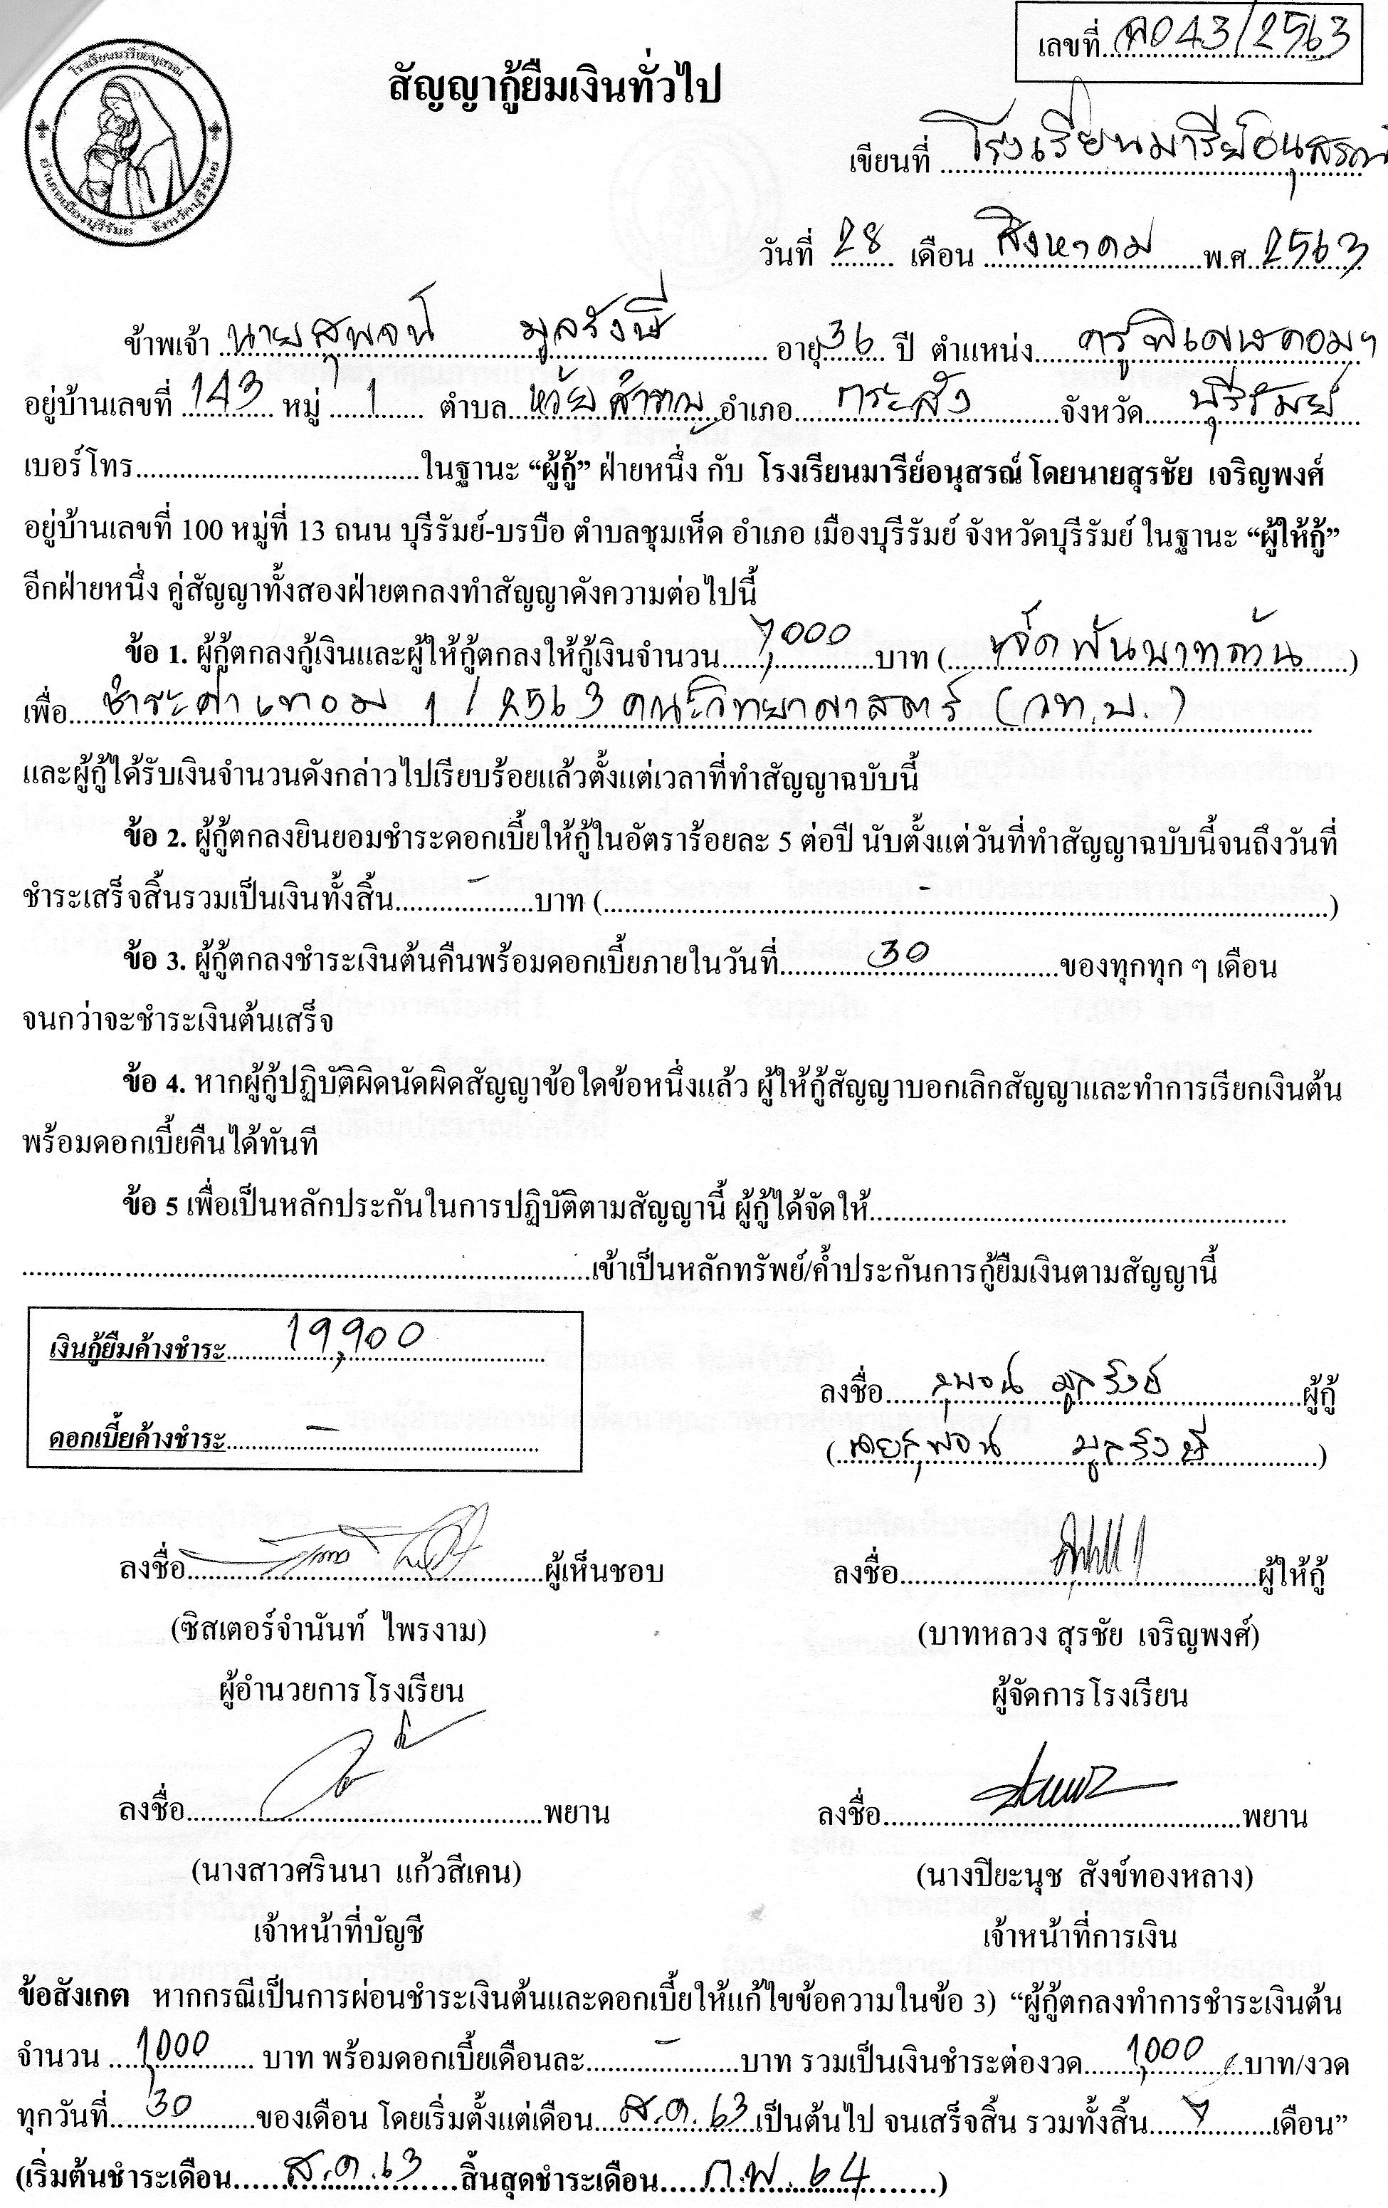 โรงเรียนมารีย์อนุสรณ์
อำเภอเมืองบุรีรัมย์ จังหวัดบุรีรัมย์
เลขที่ ค043/2563
สัญญากู้ยืมเงินทั่วไป
เขียนที่ โรงเรียนมารีย์อนุสรณ์
วันที่ 28 เดือน สิงหาคม พ.ศ. 2563
ข้าพเจ้า นายสุพจน์ มูลรังษี อายุ 36 ปี ตำแหน่ง ครูพิเศษคอมฯ
อยู่บ้านเลขที่ 143 หมู่ 1 ตำบล ห้วยสำราญ อำเภอ กระสัง จังหวัด บุรีรัมย์
เบอร์โทร....................ในฐานะ “ผู้กู้” ฝ่ายหนึ่ง กับ โรงเรียนมารีย์อนุสรณ์ โดยนายสุรชัย เจริญพงศ์
อยู่บ้านเลขที่ 100 หมู่ที่ 13 ถนน บุรีรัมย์-บรบือ ตำบลชุมเห็ด อำเภอ เมืองบุรีรัมย์ จังหวัดบุรีรัมย์ ในฐานะ “ผู้ให้กู้”
อีกฝ่ายหนึ่ง คู่สัญญาทั้งสองฝ่ายตกลงทำสัญญาดังความต่อไปนี้
ข้อ 1. ผู้กู้ตกลงกู้เงินและผู้ให้กู้ตกลงให้กู้เงินจำนวน 7,000 บาท ( เจ็ดพันบาทถ้วน )
เพื่อ ชำระค่าเทอม 1/2563 คณะวิทยาศาสตร์ (วท.บ.)
และผู้กู้ได้รับเงินจำนวนดังกล่าวไปเรียบร้อยแล้วตั้งแต่เวลาที่ทำสัญญาฉบับนี้
ข้อ 2. ผู้กู้ตกลงยินยอมชำระดอกเบี้ยให้กู้ในอัตราร้อยละ 5 ต่อปี นับตั้งแต่วันที่ทำสัญญาฉบับนี้จนถึงวันที่
ชำระเสร็จสิ้นรวมเป็นเงินทั้งสิ้น - บาท ( - )
ข้อ 3. ผู้กู้ตกลงชำระเงินต้นคืนพร้อมดอกเบี้ยภายในวันที่ 30 ของทุกทุก ๆ เดือน
จนกว่าจะชำระเงินต้นเสร็จ
ข้อ 4. หากผู้กู้ปฏิบัติผิดนัดผิดสัญญาข้อใดข้อหนึ่งแล้ว ผู้ให้กู้สัญญาบอกเลิกสัญญาและทำการเรียกเงินต้น
พร้อมดอกเบี้ยคืนได้ทันที
ข้อ 5 เพื่อเป็นหลักประกันในการปฏิบัติตามสัญญานี้ ผู้กู้ได้จัดให้....................
....................เข้าเป็นหลักทรัพย์/ค้ำประกันการกู้ยืมเงินตามสัญญานี้
เงินกู้ยืมค้างชำระ 19,900
ดอกเบี้ยค้างชำระ -
ลงชื่อ สุพจน์ มูลรังษี ผู้กู้
( นายสุพจน์ มูลรังษี )
ลงชื่อ....................ผู้เห็นชอบ ลงชื่อ....................ผู้ให้กู้
(ซิสเตอร์จำนันท์ ไพรงาม) (บาทหลวง สุรชัย เจริญพงศ์)
ผู้อำนวยการโรงเรียน ผู้จัดการโรงเรียน
ลงชื่อ....................พยาน ลงชื่อ....................พยาน
(นางสาวศรินนา แก้วสีเคน) (นางปิยะนุช สังข์ทองหลาง)
เจ้าหน้าที่บัญชี เจ้าหน้าที่การเงิน
ข้อสังเกต หากกรณีเป็นการผ่อนชำระเงินต้นและดอกเบี้ยให้แก้ไขข้อความในข้อ 3) “ผู้กู้ตกลงทำการชำระเงินต้น
จำนวน 1,000 บาท พร้อมดอกเบี้ยเดือนละ - บาท รวมเป็นเงินชำระต่องวด 1,000 บาท/งวด
ทุกวันที่ 30 ของเดือน โดยเริ่มตั้งแต่เดือน ส.ค. 63 เป็นต้นไป จนเสร็จสิ้น รวมทั้งสิ้น 7 เดือน”
(เริ่มต้นชำระเดือน ส.ค. 63 สิ้นสุดชำระเดือน ก.พ. 64 )